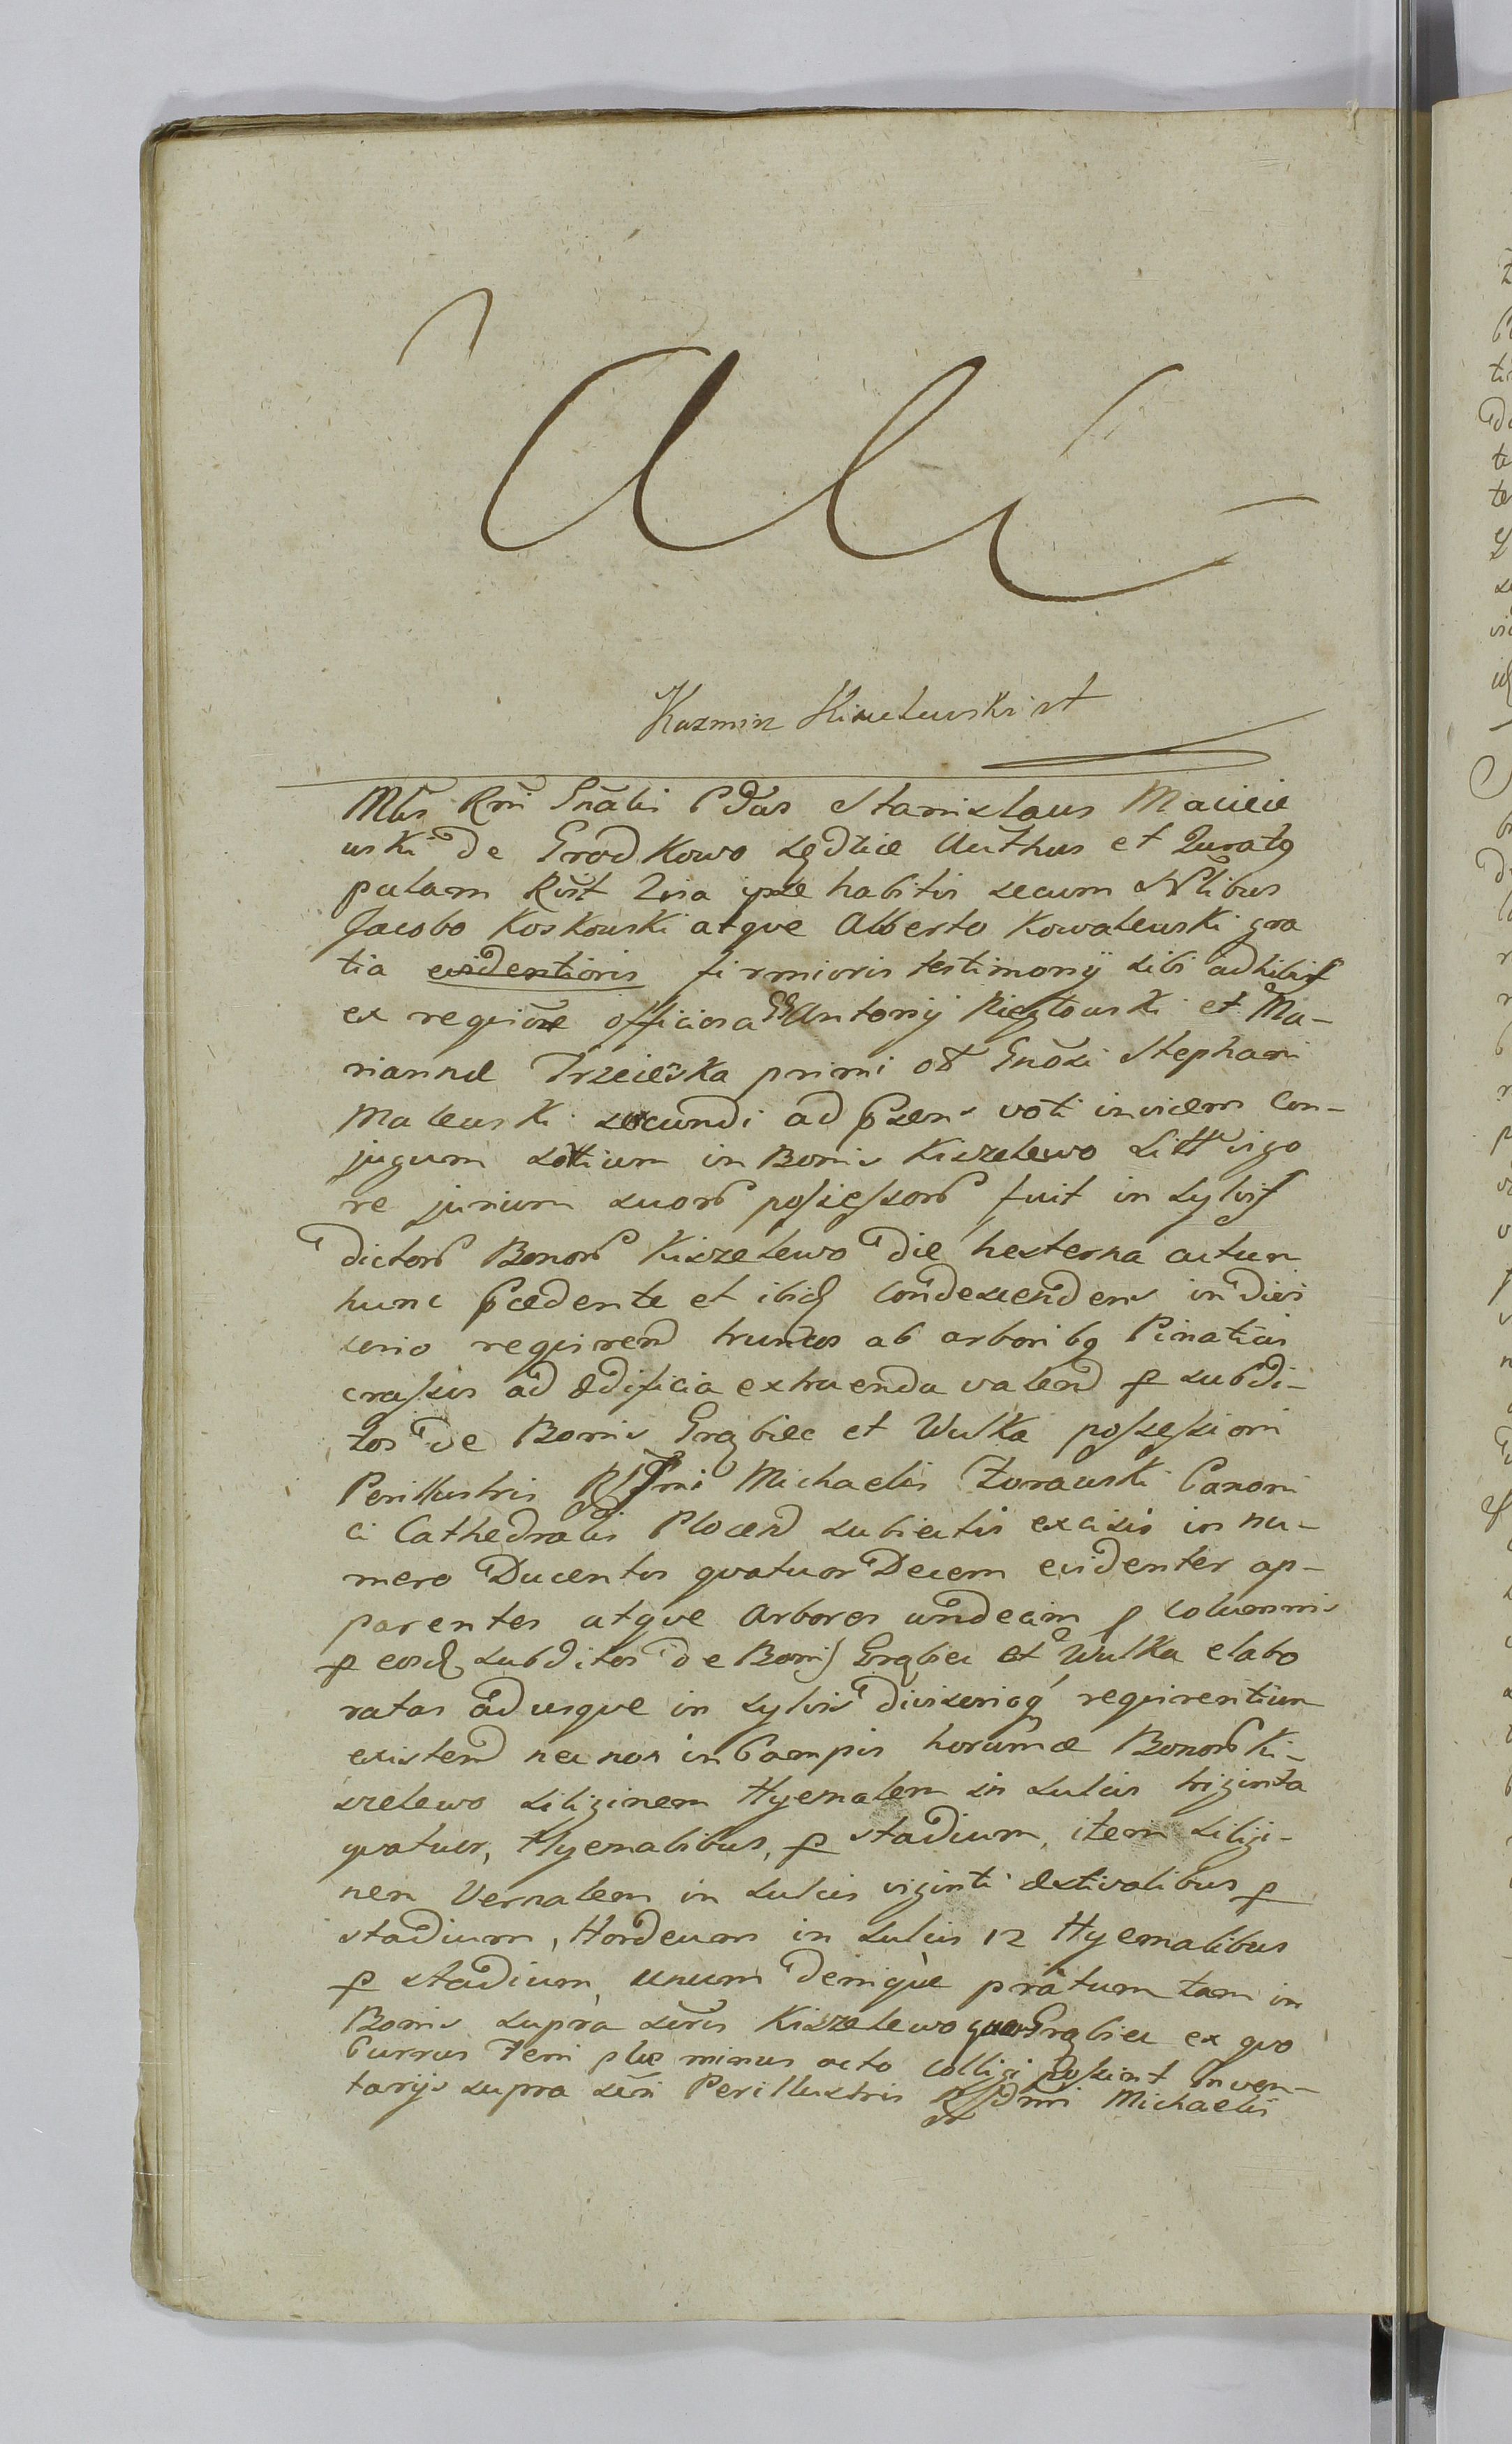 Kazmirz Kisielewski
Mtrs Rni Gnalis Pdas Stanislaus Macieie
wski de Grodkowo Sędzice Authus et Juratq
palam Rost Lrsa ipse habitis secum Nlibus
Jacobo Koskowski atque Alberto Kowalewski gra
tia evidentioris firmioris testimonij sibi adhibit
ex reqione officiosa GG Antonij Rięzłowski et Ma-
riannæ Trzcieńska primi ol Gnosi Stephani
Malewski secundi ad psens voti invicem Con-
jugum in Bonis Kiszelewo Sitt vigo
re jurium suor possessor fuit in sylvis
dictor Bonor Kiszelewo die hesterna actum
hunc pcedente et ibid Condescendens indivi
serio requirend truncos ab arboribq Pinaticis
crassis ad ædificia extruenda valend p subdi-
tos de Bonis Grąbiec et Wulka possessioni
Perillustris Rssmi Michaelis Żorawski Canoni
ci Cathedralis Plocen subiectis excisis in nu-
mero Ducentos quatuor Decem evidenter ap-
parentes atque Arbores undecim p columnis
p eosd subditos de Bonis Grąbiec et Wulka elabo
ratas adusque in sylvis diviserioq requirentium
existend nec non in Campis horumce Bonor Ki-
szelewo siliginem Hyemalem in sulcis triginta
quatuor, Hyemalibus, p stadium, item silligi-
nem Vernalem in sulcis viginti æstivalibus p
stadium, Hordeum in sulcis 12 Hyemalibus
p stadium, unum denique pratum tam in
Bonis supra scris Kiszelewo quam Grąbiec ex quo
Currus feni plus minus octo Colligi possint Inven-
tarijs supra scri Perillustris Rssdmi Michaelis